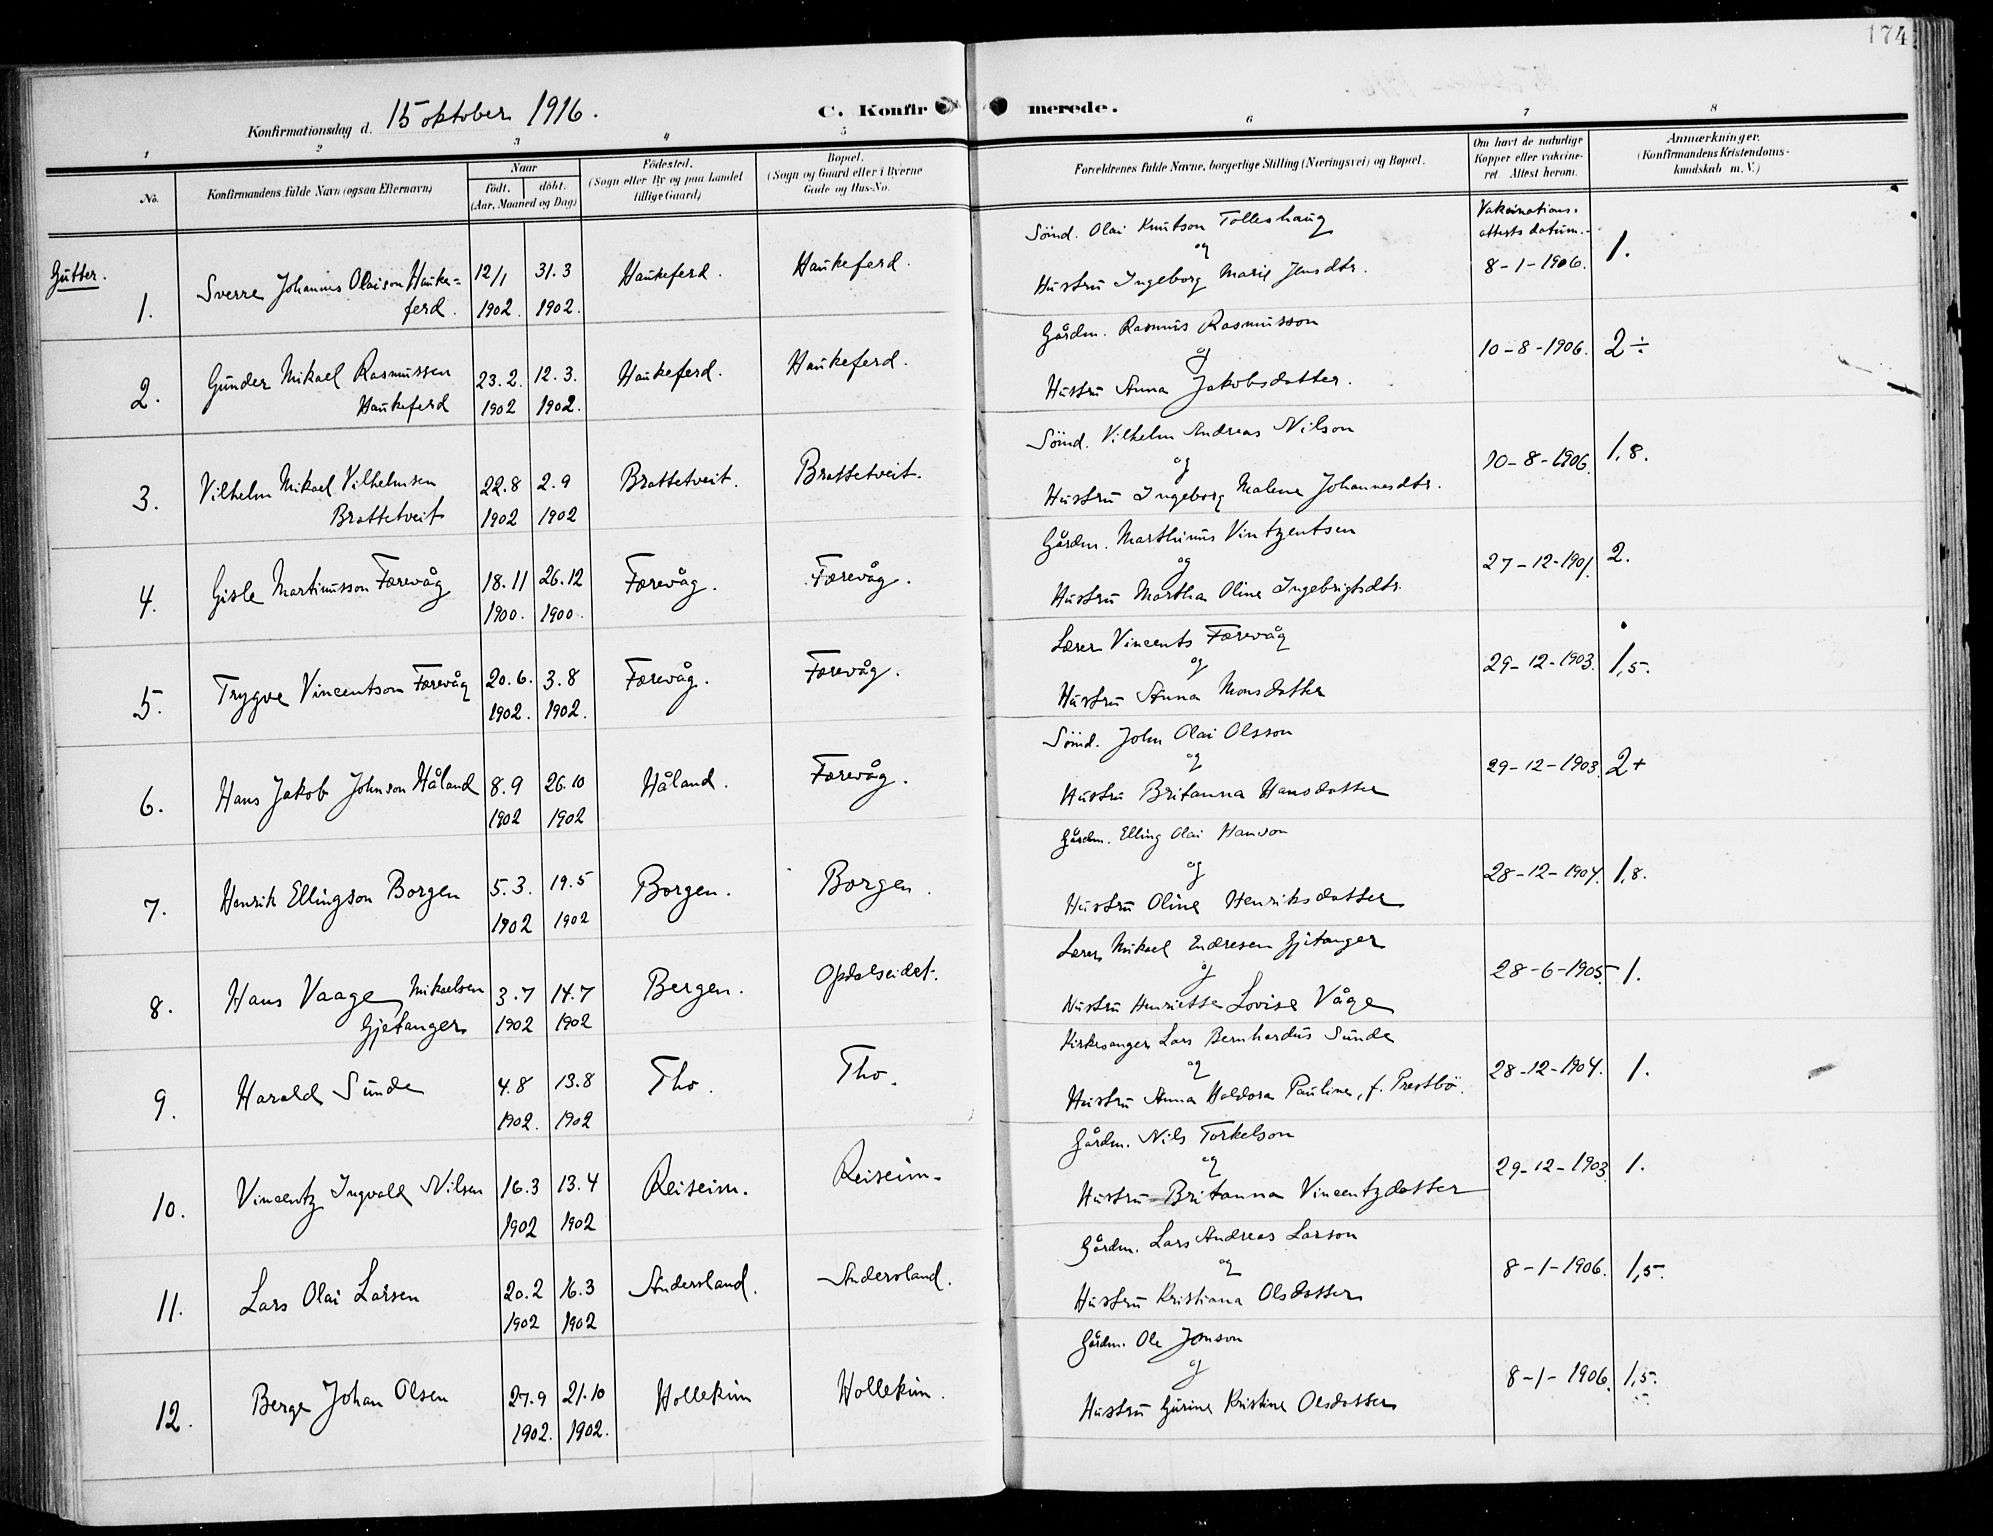 174
Konfirmationsdag d. 15 oktober 1916.
C. Konfirmerede.
1 2 3 4 5 6 7 8
No.
Konfirmandens fulde Navn (ogsaa Efternavn)
Naar
født. døbt.
(Aar, Maaned og Dag)
Fødested.
(Sogn eller By og paa Landet
tillige Gaard)
Bopæl.
(Sogn og Gaard eller i Byerne
Gade og Hus-No.
Forældrenes fulde Navne, borgerlige Stilling (Næringsvei) og Bopæl.
Om havt de naturlige
Kopper eller vakcine-
ret. Attest herom.
Anmærkninger.
(Konfirmandens Kristendoms-
kundskab m. V.)
Vakcinations-
attests datum.
Gutter.
1. Sverre Johannes Olaison Hauke-
ferd.
12/1 1902. 31.3 1902. Haukeferd. Haukeferd.
Sömd. Olai Knutson Tolleshaug
og
Hustru Ingeborg Marie Jensdtr.
8-1-1906. 1.
2. Gunder Mikael Rasmussen
Haukeferd
23.2. 1902 12.3. 1902. Haukeferd. Haukeferd.
Gårdm. Rasmus Rasmusson
og
Hustru Anna Jakobsdatter.
10-8-1906. 2÷
3. Vilhelm Mikael Vilhelmsen
Brattetveit
22.8 1902 2.9 1902 Brattetveit. Brattetveit.
Sömd. Vilhelm Andreas Nilson
og
Hustru Ingeborg Malene Johannesdtr.
10-8-1906. 1,8.
4. Gisle Martinusson Færevåg
18.11 1900. 26.12 1900. Færevåg. Færevåg.
Gårdm. Marthinus Vintzentsen
og
Hustru Martha Oline Ingebrigtsdtr.
27-12-1901. 2.
5. Trygve Vincentson Færevåg
20.6. 1902. 3.8 1902. Færevåg. Færevåg.
Lærer Vincents Færevåg
og
Hustru Anna Monsdatter
29-12-1903. 1,5.
6. Hans Jakob Johnson Håland
8.9 1902 26.10 1902 Håland. Færevåg.
Sömd. John Olai Olsson
og
Hustru Britanna Hansdatter
29-12-1903. 2+
7. Henrik Ellingson Borgen
5.3. 1902 19.5 1902 Borgen. Borgen.
Gårdm. Elling Olai Hanson
og
Hustru Oline Henriksdatter
28-12-1904. 1,8.
8. Hans Vaage Mikaelsen
Gjetanger
3.7 1902 14.7 1902 Bergen. Opdalseidet.
Lærer Mikael Endresen Gjetanger
og
Hustru Henriette Lovise Våge
28-6-1905. 1.
9. Harald Sunde
4.8 1902. 13.8 1902 Tho. Tho.
Kirkesanger Lars Bernhardus Sunde
og
Hustru Anna Haldora Pauline, f. Prestbö.
28-12-1904. 1.
10. Vincentz Ingvald Nilsen
16.3 1902 13.4 1902 Reiseim. Reiseim.
Gårdm. Nils Torkelson
og
Hustru Britanna Vincentzdatter
29-12-1903 1.
11. Lars Olai Larsen
20.2 1902 16.3 1902 Andersland. Andersland.
Gårdm. Lars Andreas Larson
og
Hustru Kristiana Olsdatter
8-1-1906. 1,5.
12. Berge Johan Olsen
27.9 1902. 21.10 1902. Hollekim Hollekim.
Gårdm. Ole Jonson
og
Hustru Gurine Kristine Olsdatter
8-1-1906. 1,5.